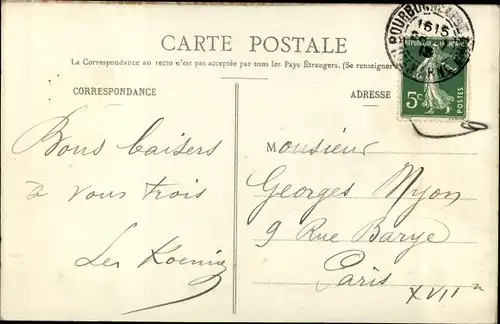 CARTE POSTALE
La Correspondance au recto n'est pas acceptée par tous les Pays Étrangers. (Se renseigner
CORRESPONDANCE
ADRESSE
5c POSTES
Bons baisers
à vous trois
Les
Monsieur
Georges Nyon
9 Rue Barye
Paris
XVII